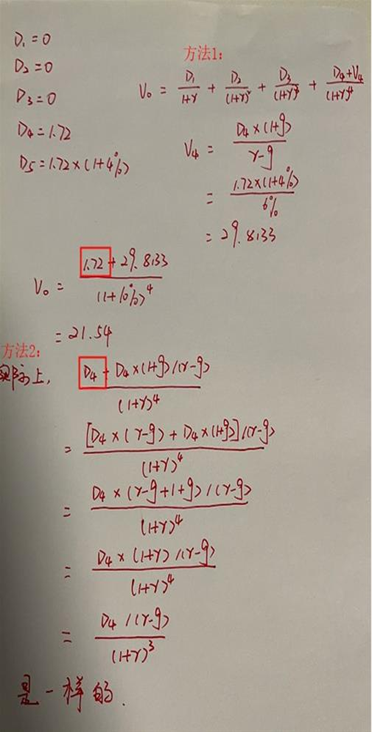 D₁=0
D₂=0
D₃=0
D₄=1.72
D₅=1.72×(1+4%)
方法1:
V₀ = D₁/(1+r) + D₂/(1+r)² + D₃/(1+r)³ + (D₄+V₄)/(1+r)⁴
V₄ = D₄×(1+g)/(r-g)
= 1.72×(1+4%)/6%
= 29.8133
V₀ = (1.72+29.8133)/(1+10%)⁴
=21.54
方法2:
实际上,
D₄+D₄×(1+g)/(r-g)/(1+r)⁴
= [D₄×(r-g)+D₄×(1+g)]/(r-g)/(1+r)⁴
= D₄×(r-g+1+g)/(r-g)/(1+r)⁴
= D₄×(1+r)/(r-g)/(1+r)⁴
= D₄/(r-g)/(1+r)³
是一样的.